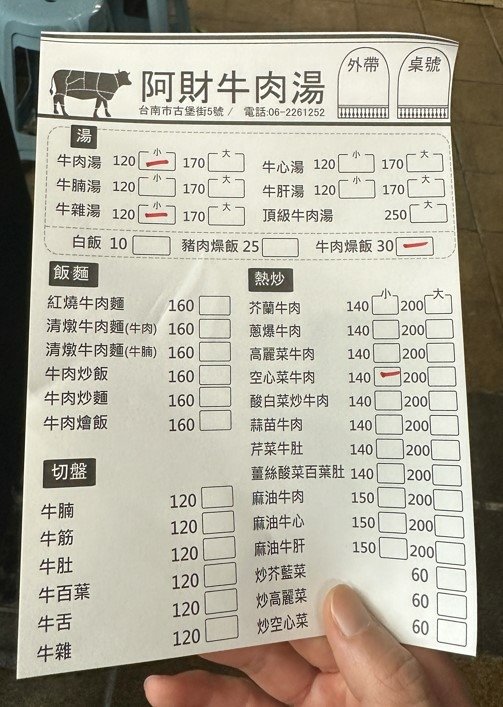 阿財牛肉湯
台南市古堡街5號 / 電話:06-2261252
外帶
桌號
湯
牛肉湯 120 小 170 大
牛腩湯 120 小 170 大
牛雜湯 120 小 170 大
牛心湯 120 小 170 大
牛肝湯 120 小 170 大
頂級牛肉湯 250 大
白飯 10 豬肉燥飯 25 牛肉燥飯 30
飯麵
紅燒牛肉麵 160
清燉牛肉麵(牛肉) 160
清燉牛肉麵(牛腩) 160
牛肉炒飯 160
牛肉炒麵 160
牛肉燴飯 160
切盤
牛腩 120
牛筋 120
牛肚 120
牛百葉 120
牛舌 120
牛雜 120
熱炒
小 大
芥蘭牛肉 140 200
蔥爆牛肉 140 200
高麗菜牛肉 140 200
空心菜牛肉 140 200
酸白菜炒牛肉 140 200
蒜苗牛肉 140 200
芹菜牛肚 140 200
薑絲酸菜百葉肚 140 200
麻油牛肉 150 200
麻油牛心 150 200
麻油牛肝 150 200
炒芥藍菜 60
炒高麗菜 60
炒空心菜 60